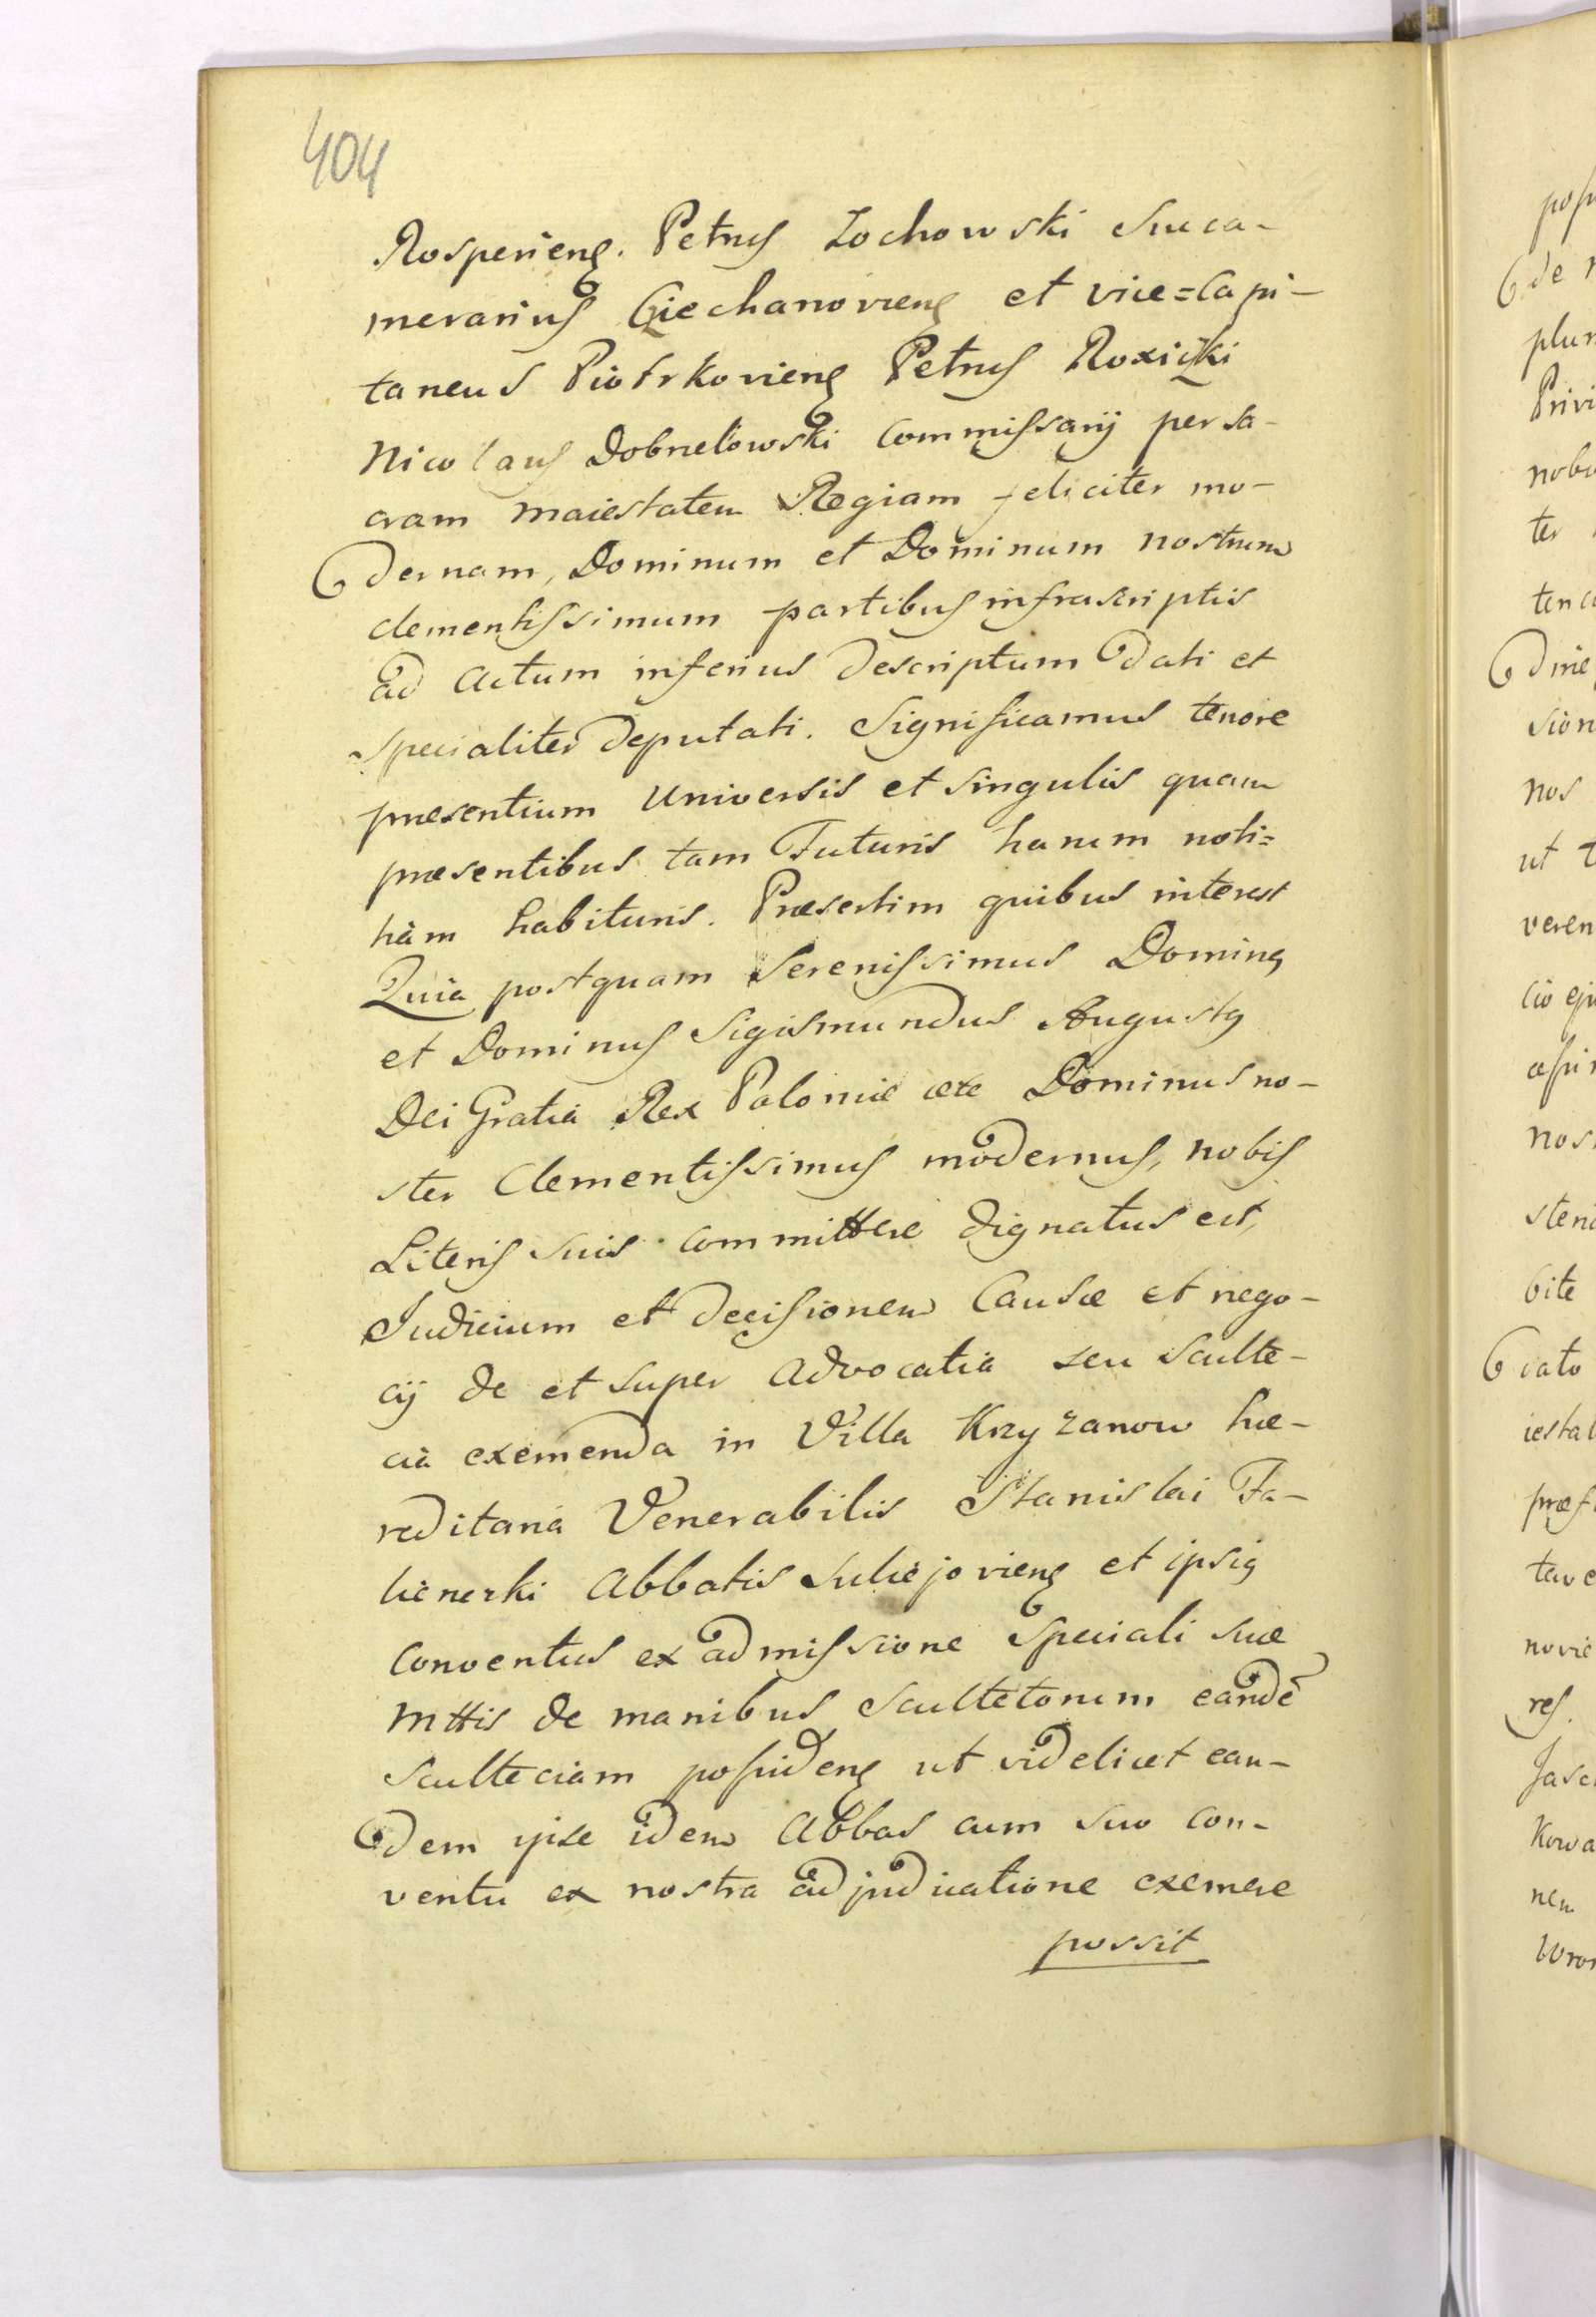 404
Rosperieng. Petrus Zochowski Succa-
merarius Ciechanovieng et vice=Capi-
taneus Piotrkovieng Petrus Roxicki
Nicolaus Dobnelowski Commissarij per sa-
cram maiestatem Regiam feliciter mo-
dernam, Dominum et Dominum nostrum
clementissimum partibus infrascriptis
ad actum inferius descriptum dati et
specialiter deputati. Significamus tenore
praesentium Universis et singulis quam
praesentibus tam Futuris harum noti=
tiam habituris. Praesertim quibus interest
Quia postquam Serenissimus Doming
et Dominus Sigismundus Augustg
Dei Gratia Rex Poloniae etc Dominus no-
ster Clementissimus modernus, nobis
Literis suis committere dignatus est,
Judicium et decisionem Causae et nego-
cij de et super Advocatia seu Sculte-
cia exemenda in Villa Krzyzanow hae-
reditaria Venerabilis Stanislai Fa-
lienerki Abbatis Suliejovieng et ipsig
Conventus ex admissione Speciali suae
Mttis de manibus Scultetorum eandē
Sculteciam possideng ut videlicet ean-
dem ipse idem Abbas cum suo con-
ventu ex nostra adjudicatione exemere
possit